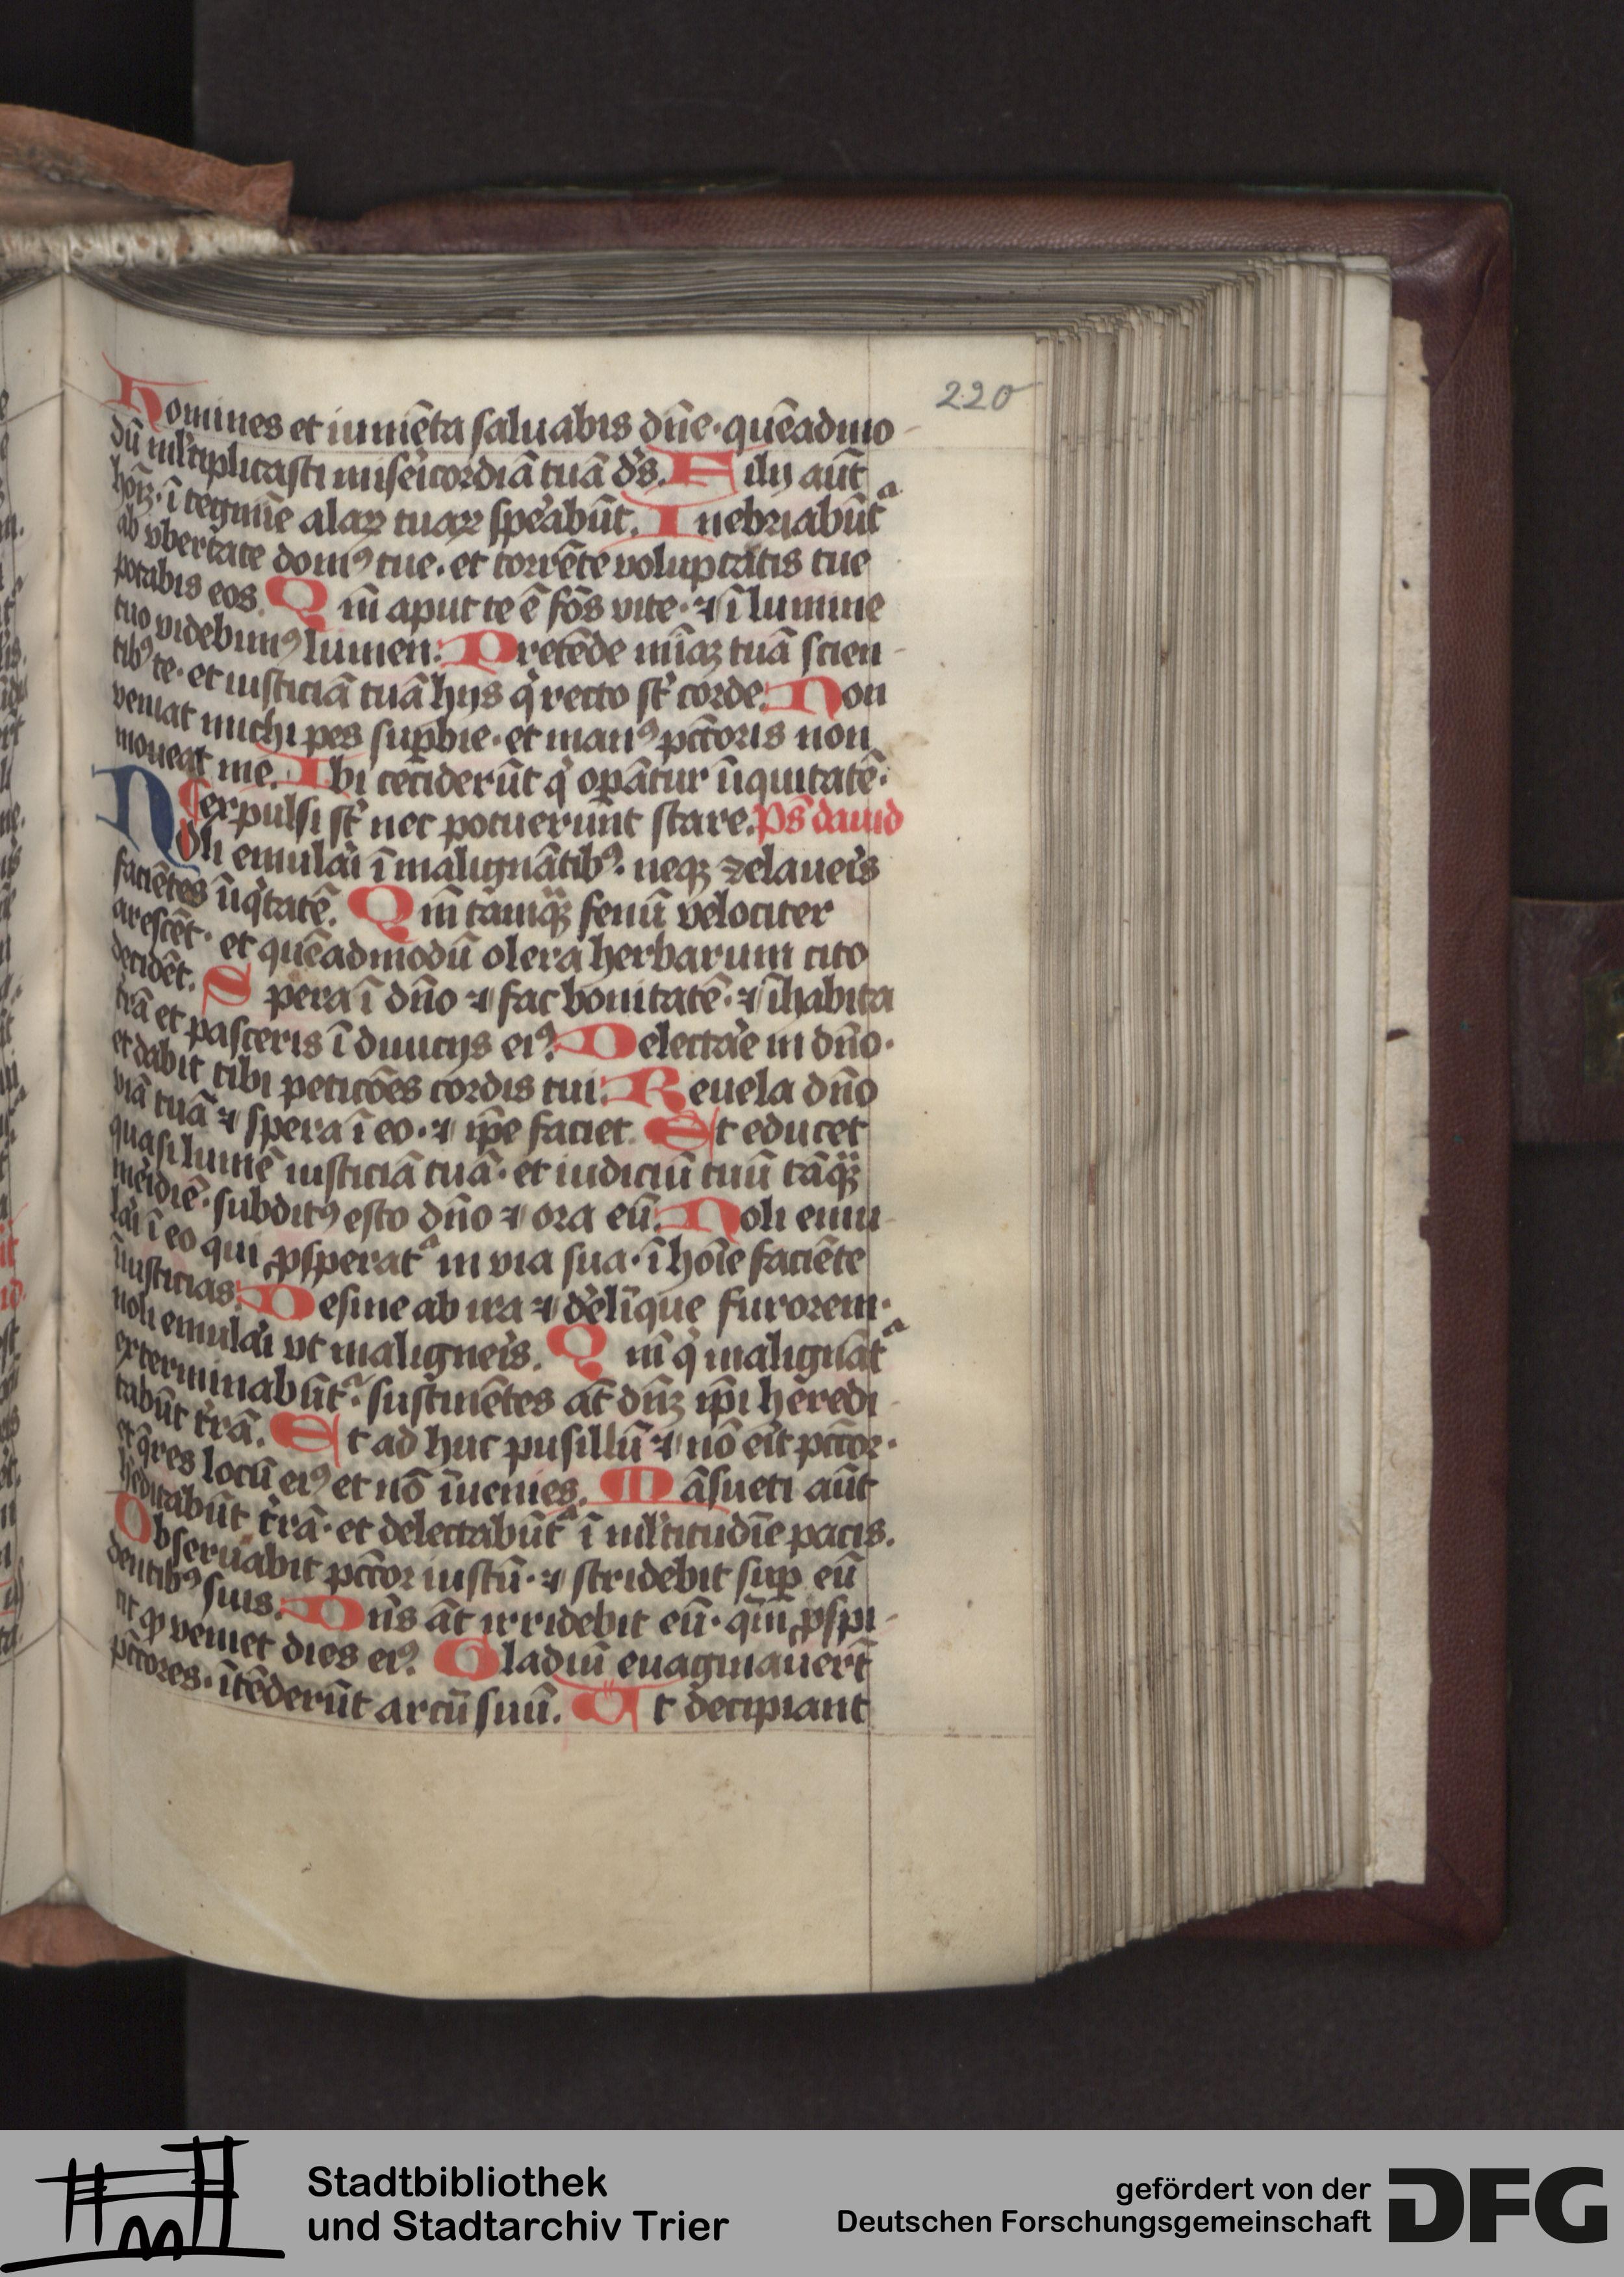 220
Homines et iumēta saluabis dn̄e · quēadmo-
dū ml̓tiplicasti misei̓cordiā tuā d̓s. Filij aūt
hoīꝫ · ī tegmīe alaꝝ tuaꝝ spe̓abūt. Inebriabūtᵃ
ab vbertate domꝰ tue · et torrēte voluptatis tue
potabis eos. Qm̄ aput te ē fōs vite · ⁊ ī lumine
tuo videbimꝰ lumen: Pretēde mīaꝫ tuā scien-
tibꝰ te · et iusticiā tuā hijs q̓ recto st̓ corde: Non
veniat michi pes suꝑbie · et manꝰ pctōris non
moueat me. Ibi cecīderūt q̓ oꝑātur īiquitatē ·
expulsi st̓ nec potuerūnt stare. Ps̄ dauid
Noli emulai̓ ī malignātibꝰ · neqꝫ zelauei̓s
faciētes īiq̓tatē. Qm̄ tamqᷓꝫ fenū velociter
arescēt · et quēadmodū olera herbarum cito
decidēt. Spera ī dn̄o ⁊ fac bonitatē · ⁊ īhabita
tr̄ā et pasceris ī diuicijs eiꝰ. Delectae̓ in dn̄o ·
et dabit tibi peticōes cordis tui: Reuela dn̄o
viā tuā ⁊ spera ī eo · ⁊ ip̄e faciet. Et educet
quasi lumē iusticiā tuā · et iudiciū tuū tāqᷓꝫ
mei̓diē · subditꝰ esto dn̄o ⁊ ora eū: Noli emu-
lai̓ ī eo qui ꝓsperatᵃ in via sua · ī hoīe faciēte
īiusticias: Desine ab ira ⁊ de̓līque furorem ·
noli emulai̓ vt malignei̓s. Qm̄ q̓ malignātᵃ
exterminabūtᵃ · sustinētes at̄ dn̄ꝫ ip̄i heredi-
tabūt t̓rā. Et ad huc pusillū ⁊ nō ei̓t pctōr ·
et q̄res locū eiꝰ et nō īuenies. Māsueti aūt
h̓editabūt t̓rā · et delectabūtᵃ ī ml̓titudīe pacis.
Obseruabit pctōr iustū · ⁊ stridebit suꝑ eū
dentibꝰ suis: Dn̄s at̄ irridebit eū · qm̄ ꝓspi-
cit ꝙ veniet dies eiꝰ. Gladiū euaginauert̄
pctōres · ītēderūt arcū suū. Vt decipiant
Stadtbibliothek
und Stadtarchiv Trier
gefördert von der
Deutschen Forschungsgemeinschaft
DFG